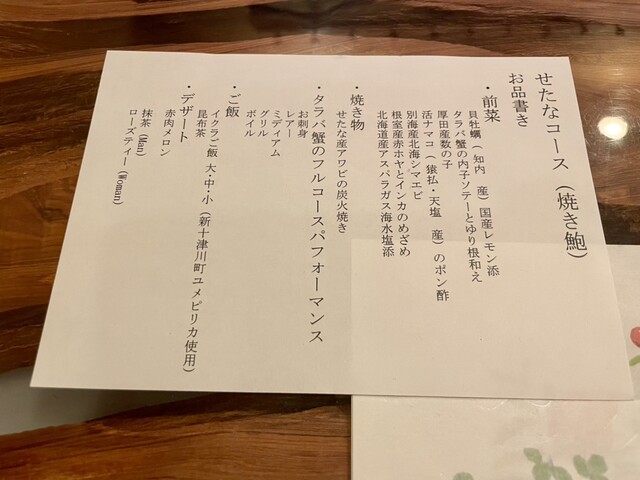 せたなコース（焼き鮑）
お品書き
・前菜
貝牡蠣（知内　産）国産レモン添
タラバ蟹の内子ソテーとゆり根和え
厚田産数の子
活ナマコ（猿払・天塩　産）のポン酢
別海産北海シマエビ
根室産赤ホヤとインカのめざめ
北海道産アスパラガス海水塩添
・焼き物
せたな産アワビの炭火焼き
・タラバ蟹のフルコースパフォーマンス
お刺身
レアー
ミディアム
グリル
ボイル
・ご飯
イクラご飯 大・中・小（新十津川町ユメピリカ使用）
昆布茶
・デザート
赤肉メロン
抹茶（Man）
ローズティー（Woman）